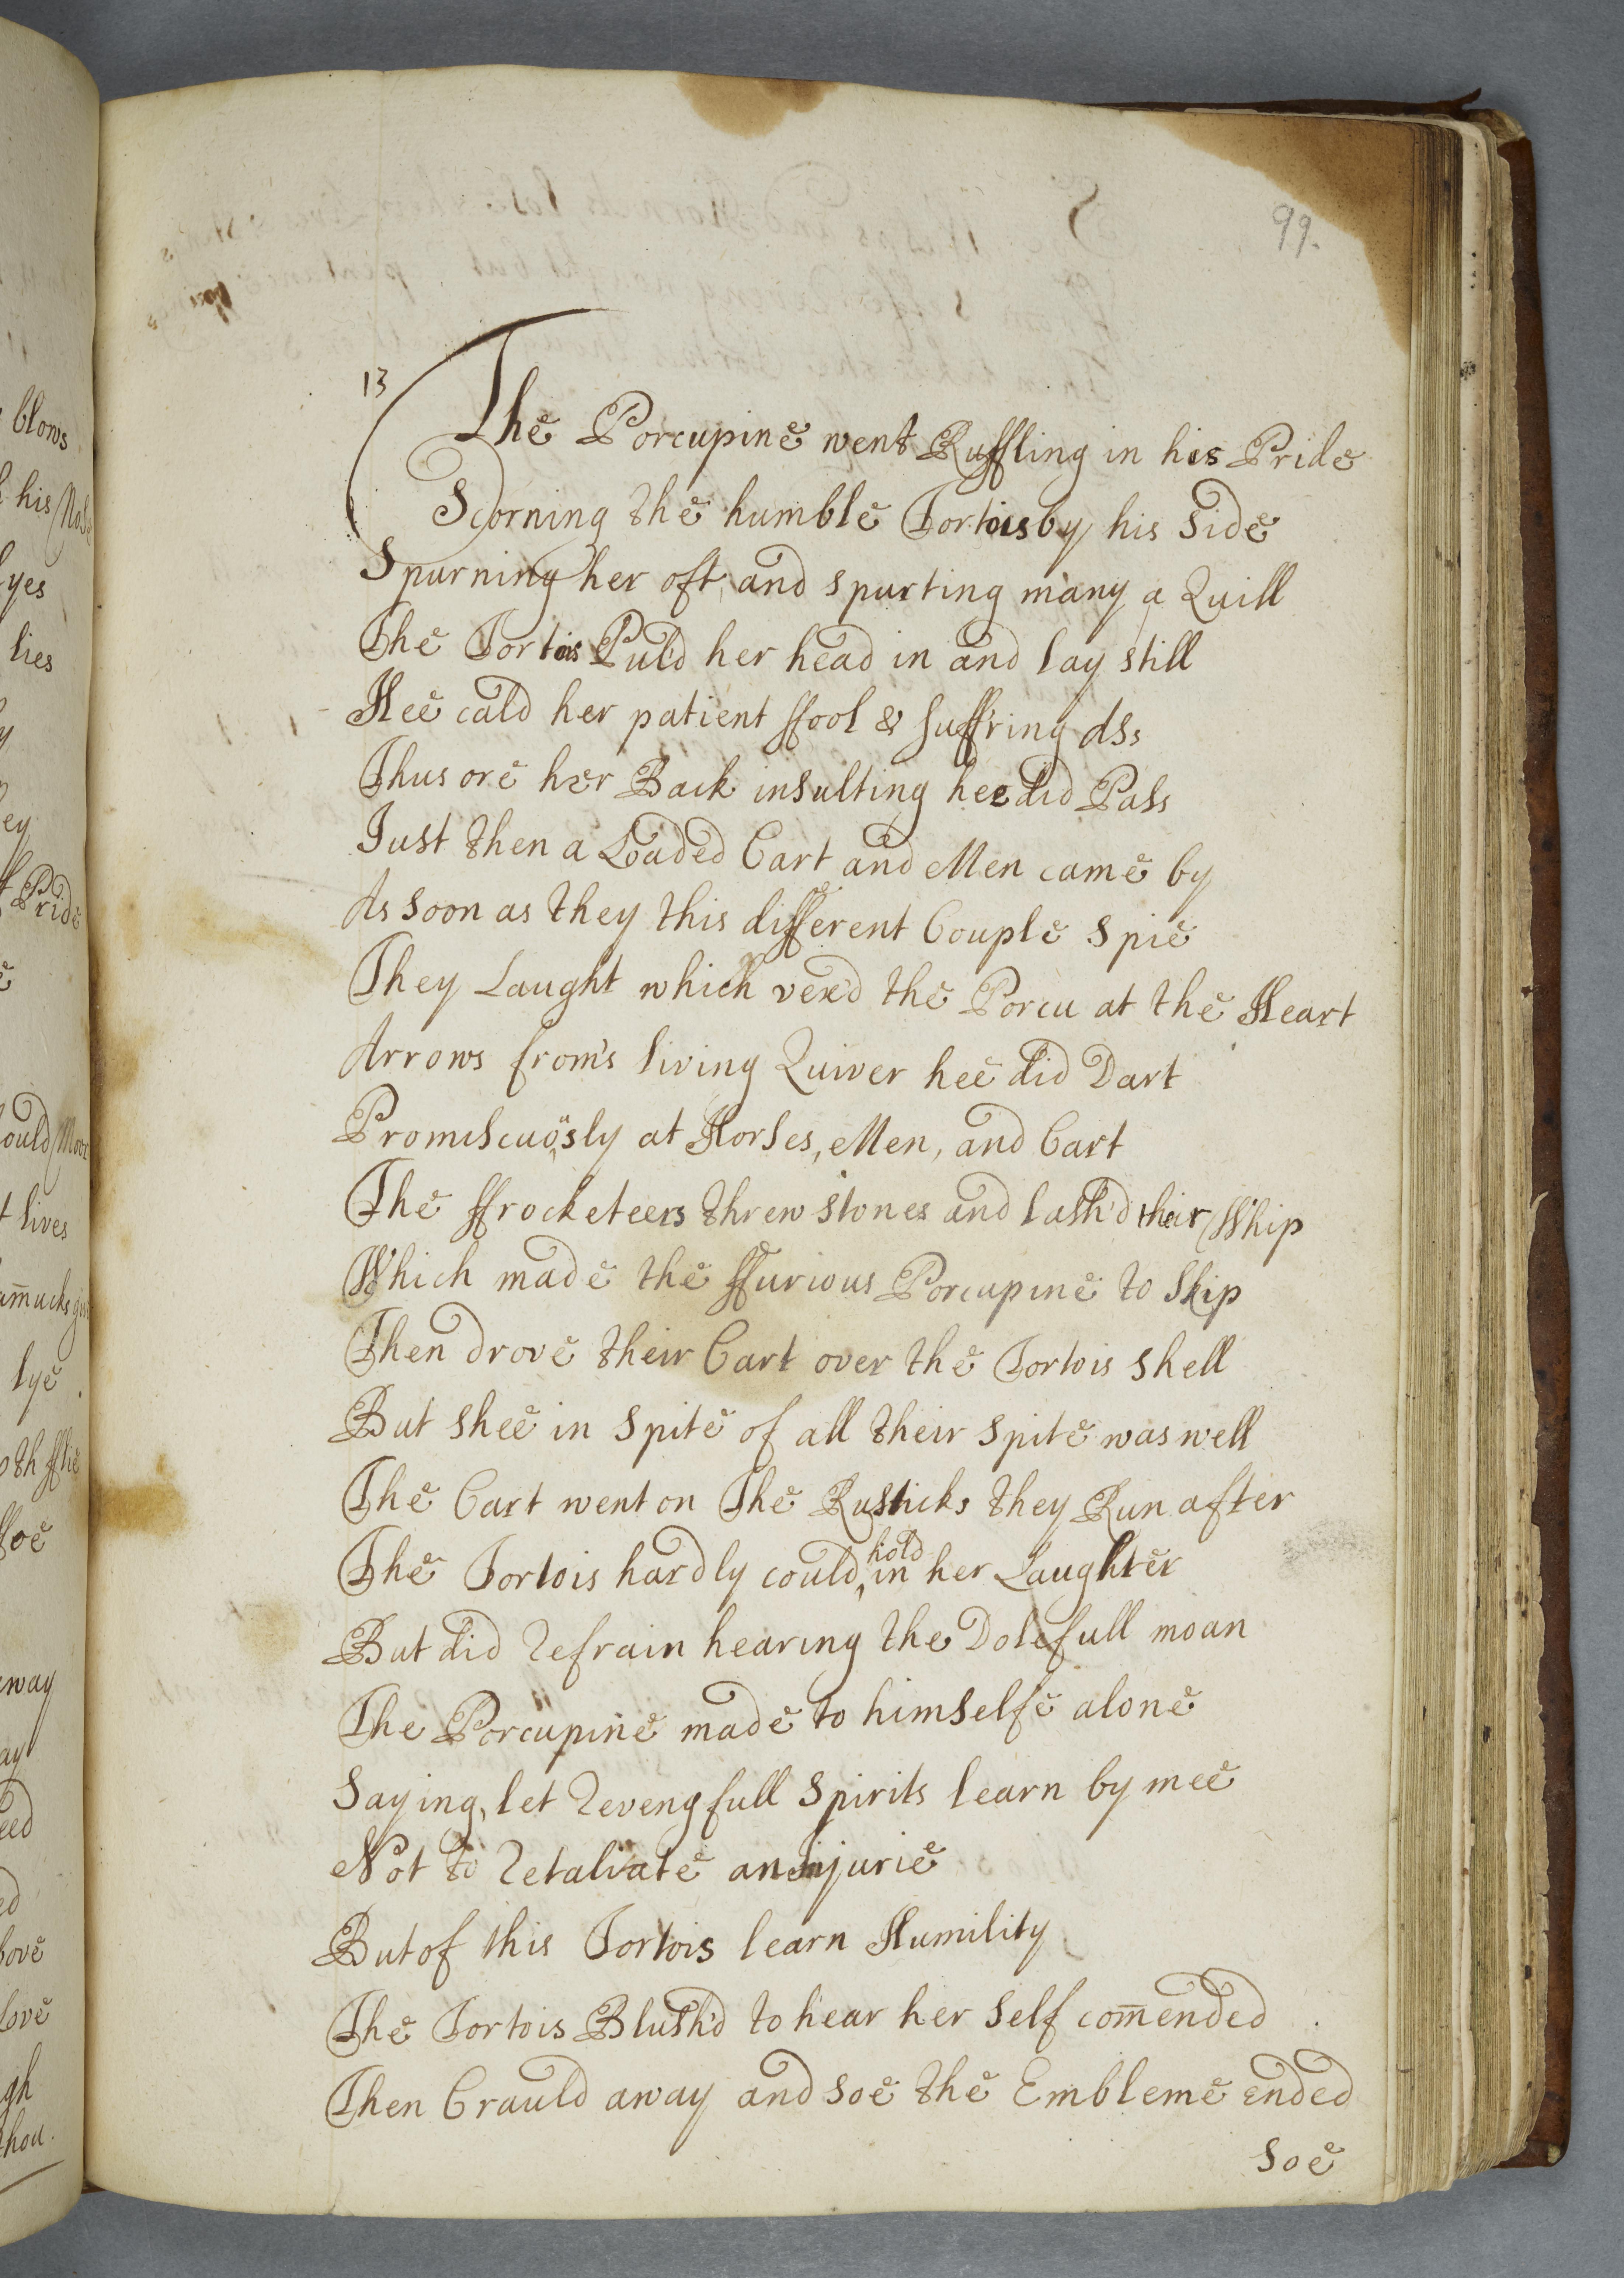 99.
13
The Porcupine went Ruffling in his Pride
Scorning the humble Tortois by his Side
Spurning her oft, and spurting many a Quill
The Tortois Pul'd her head in and lay still
Hee cal'd her patient ffool & suff'ring Ass
Thus ore her Back insulting hee did Pass
Just then a Loaded Cart and Men came by
As soon as they this different Couple spie
They Laught which vex'd the Porcu at the Heart
Arrows from's living Quiver hee did Dart
Promiscuously at Horses, Men, and Cart
The ffrocketeers threw stones and lash'd their Whip
Which made the ffurious Porcupine to Skip
Then drove their Cart over the Tortois shell
But shee in spite of all their spite was well
The Cart went on The Rusticks they Run after
The Tortois hardly could hold in her Laughter
But did refrain hearing the Dolefull moan
The Porcupine made to himselfe alone
Saying, let revengfull spirits learn by mee
Not to retaliate an Injurie
But of this Tortois learn Humility
The Tortois Blush'd to hear her self com̄ended
Then Crauld away and soe the Embleme ended
Soe
blows
his Nose
lyes
lies
ey
Pride
ould Move
t lives
am̄ucks
lye
oth fflie
ffoe
away
ay
eed
ed
bove
love
gh
thou.